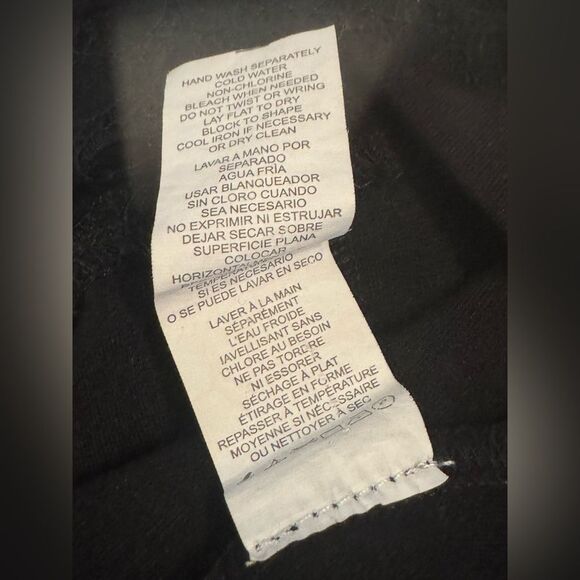 HAND WASH SEPARATELY
COLD WATER
NON-CHLORINE
BLEACH WHEN NEEDED
DO NOT TWIST OR WRING
LAY FLAT TO DRY
BLOCK TO SHAPE
COOL IRON IF NECESSARY
OR DRY CLEAN
LAVAR A MANO POR
SEPARADO
AGUA FRÍA
USAR BLANQUEADOR
SIN CLORO CUANDO
SEA NECESARIO
NO EXPRIMIR NI ESTRUJAR
DEJAR SECAR SOBRE
SUPERFICIE PLANA
COLOCAR
SI ES NECESARIO
O SE PUEDE LAVAR EN SECO
LAVER À LA MAIN
SÉPARÉMENT
L'EAU FROIDE
IAVELLISANT SANS
CHLORE AU BESOIN
NE PAS TORDRE
NI ESSORER
SÉCHAGE À PLAT
ÉTIRAGE EN FORME
REPASSER À TEMPÉRATURE
MOYENNE SI NÉCESSAIRE
OU NETTOYER À SEC